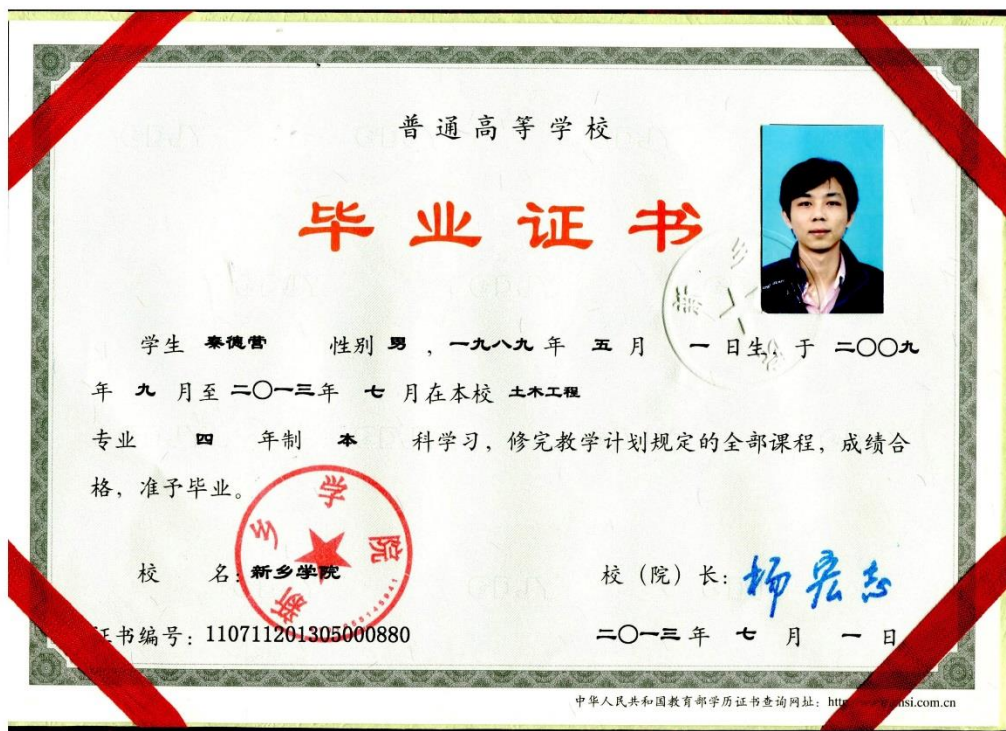 普通高等学校
毕业证书
学生 秦德营 性别 男 ，一九八九 年 五 月 一 日生，于 二〇〇九
年 九 月至 二〇一三年 七 月在本校 土木工程
专业 四 年制 本 科学习，修完教学计划规定的全部课程，成绩合
格，准予毕业。
新乡学院
校 名：新乡学院 校（院）长：杨宏志
证书编号：110711201305000880 二〇一三 年 七 月 一 日
中华人民共和国教育部学历证书查询网址：